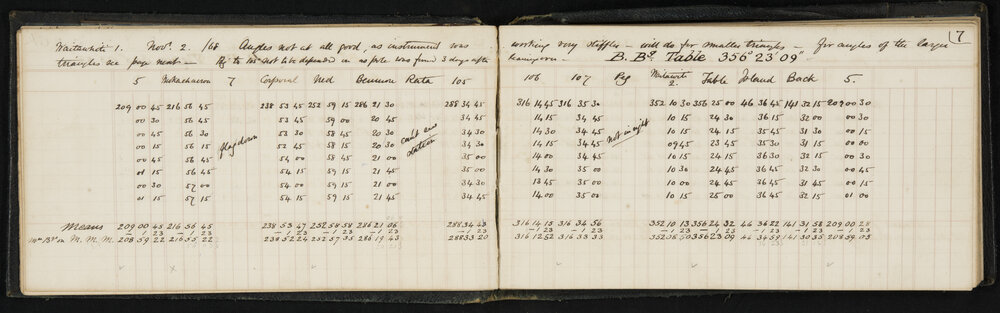 7
Waitawhiti 1. Nov. 2. /68 Angles not at all good, as instrument was working very stiffly - will do for smaller triangles - for angles of the larger
triangles see page next - to not to be depended on as pole was found 3 days after B.Bg. Table 356° 23' 09"
5 7 Corporal Ned Bennion Rata 105 106 107 Peg 2. Table Island Back 5
209 00 45 216 56 45 238 53 45 252 59 15 286 21 30 288 34 45 316 14 45 316 35 30 352 10 30 356 25 00 46 36 45 141 32 15 209 00 30
00 30 56 45 53 45 59 00 20 45 34 45 14 15 34 45 10 15 24 30 36 15 32 00 00 30
00 45 56 30 53 30 58 45 20 30 34 30 14 30 34 45 10 15 24 15 35 45 31 30 00 15
00 15 56 15 flag down 52 45 58 15 20 30 cant see station 34 30 14 15 34 45 not in sight 09 45 23 45 35 30 31 15 00 00
00 45 56 45 54 00 58 45 21 00 35 00 14 00 34 45 10 15 24 30 36 30 32 15 00 30
01 15 56 45 54 15 59 15 21 45 35 00 14 30 35 00 10 30 24 45 36 45 32 30 00 45
00 30 57 00 54 00 59 15 21 00 34 30 13 45 35 00 10 00 24 45 36 45 31 45 00 15
01 15 57 15 54 15 59 15 21 45 34 45 14 00 35 00 10 15 25 00 36 45 32 15 01 00
Means 209 00 45 216 56 45 238 53 47 252 58 58 286 21 06 288 34 43 316 14 15 316 34 56 352 10 13 356 24 32 46 36 22 141 31 58 209 00 28
-1 23 -1 23 -1 23 -1 23 -1 23 -1 23 -1 23 -1 23 -1 23 -1 23 -1 23 -1 23 -1 23
M.M.M. 208 59 22 216 55 22 238 52 24 252 57 35 286 19 43 288 33 20 316 12 52 316 33 33 352 08 50 356 23 09 46 34 59 141 30 35 208 59 05